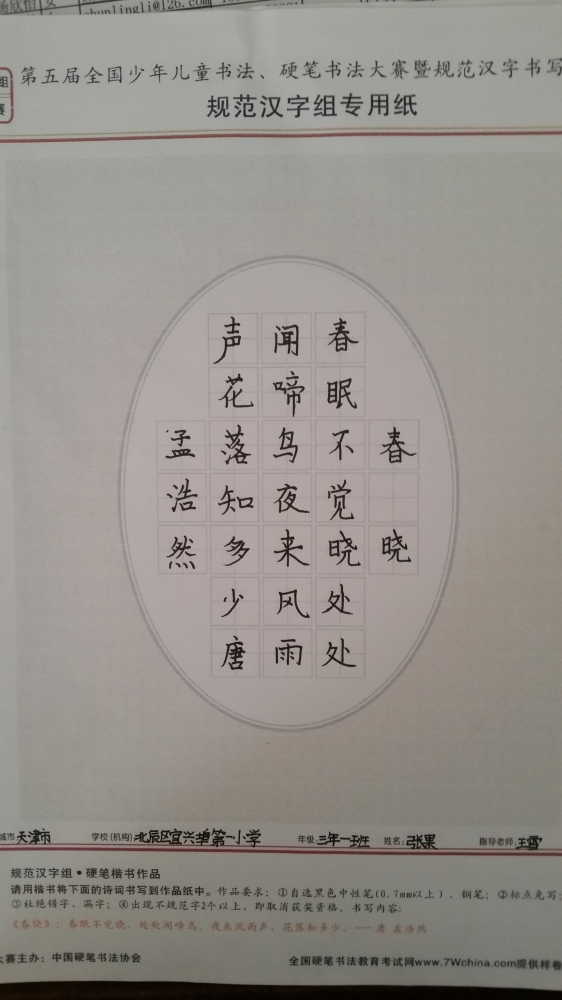 chunlingli@126.com
第五届全国少年儿童书法、硬笔书法大赛暨规范汉字书写
组
赛
规范汉字组专用纸
春晓
春眠不觉晓处处
闻啼鸟夜来风雨
声花落知多少唐
孟浩然
城市 天津市 学校(机构) 北辰区宜兴埠第一小学 年级: 三年一班 姓名: 张果 指导老师: 王雪
规范汉字组·硬笔楷书作品
请用楷书将下面的诗词书写到作品纸中。作品要求:①自选黑色中性笔(0.7mm以上)、钢笔;②标点免写;
③杜绝错字、漏字;④出现不规范字2个以上,即取消获奖资格。书写内容:
《春晓》:春眠不觉晓,处处闻啼鸟。夜来风雨声,花落知多少。——唐 孟浩然
大赛主办:中国硬笔书法协会 全国硬笔书法教育考试网www.7Wchina.com提供样卷